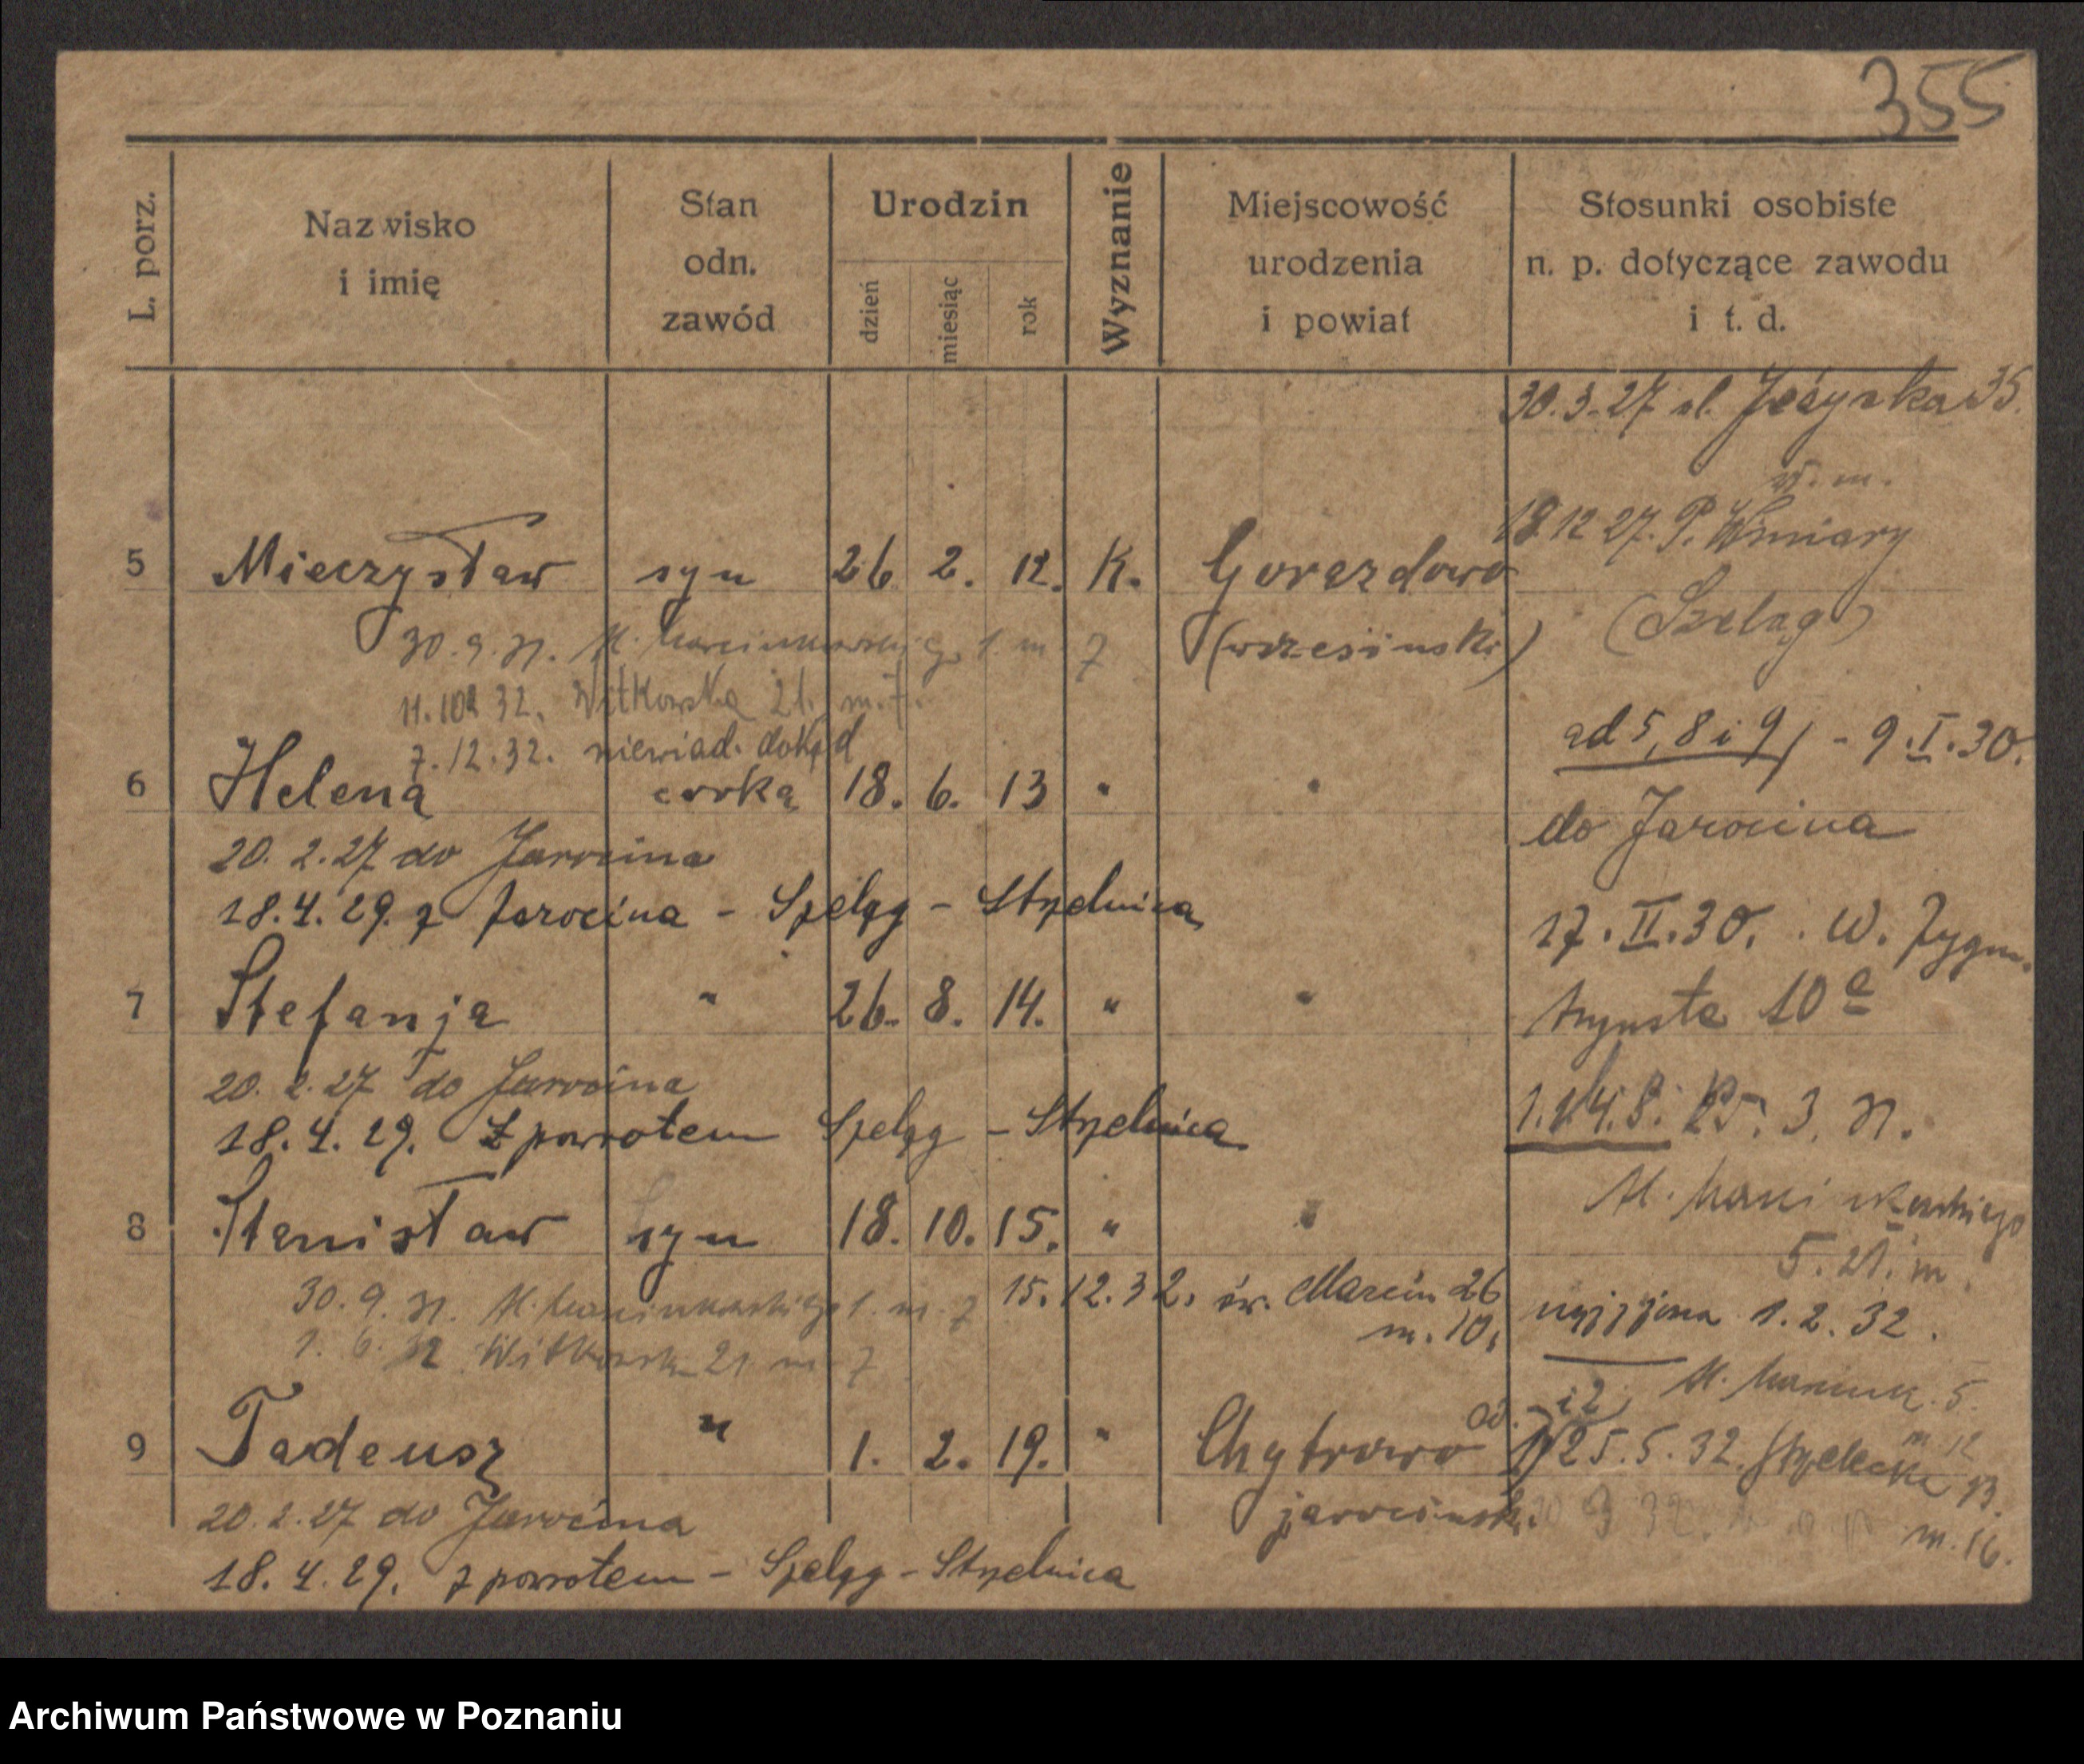 355
L. porz.
Nazwisko i imię
Stan odn. zawód
Urodzin
dzień
miesiąc
rok
Wyznanie
Miejscowość urodzenia i powiat
Stosunki osobiste n. p. dotyczące zawodu i t. d.
30.3.27 ul. 35.
w. m.
18.12 27. P. Winiary
(Szeląg)
5 Mieczysław syn 26 2. 12. K. Gorazdowo
(wrzesiński)
30.9.31. M. 1. m 7
11.10a 32. Witkowska 21. m. 7.
7.12.32. niewiad. dokąd
ad 5, 8 i 9) - 9.I.30.
6 Helena córka 18. 6. 13 " "
do Jarocina
20.2.27 do Jarocina
18.4.29. z Jarocina - Szeląg - Strzelnica
17.II.30. W. Zygm.
7 Stefanja " 26. 8. 14. " "
Augusta 10a
20.2.27 do Jarocina
18.4.29. z powrotem Szeląg - Strzelnica
3. 31.
8 Stanisław syn 18. 10. 15. " "
M. Marcinkowskiego
5. 21. m.
30.9.31. M. Marcinkowskiego 1. m. 7
15.12.32. św. Marcin 26
m. 10.
1. 6. 32 Witkowska 21 m 7
1.2.32.
M. Marcink. 5.
m 12
9 Tadeusz " 1. 2. 19. " Chytrowo
25.5.32. Strzelecka 13.
m. 16.
jarociński.
20.2.27 do Jarocina
18.4.29. z powrotem - Szeląg - Strzelnica
Archiwum Państwowe w Poznaniu